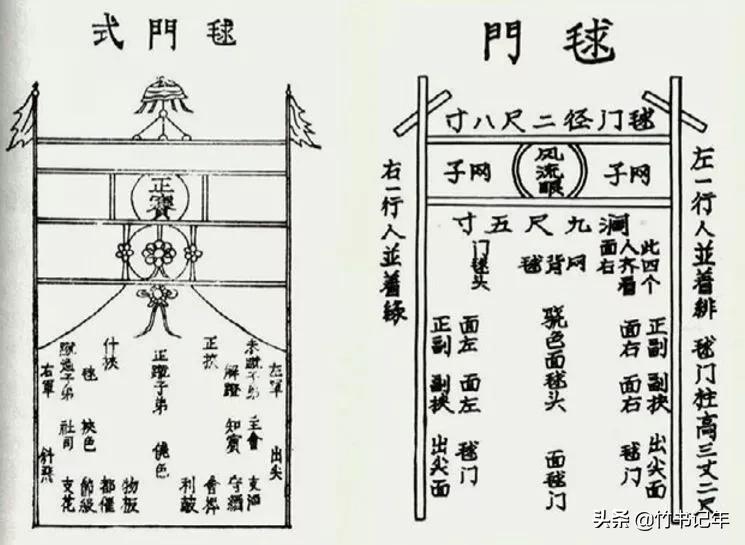 毬門式
正賽
左軍
出尖
主會
支酒
解蹬
知賓
守網
正挾
會幹
利鼓
正蹴子弟
饒色
什淡
物板
都催
毬
挾色
節級
社司
支花
右軍
毬門
毬门径二尺八寸
网子
风流眼
网子
左一行人並着緋 毬门柱高三丈二尺
右一行人並着綠
九尺五寸
此四个
人齐看
面右
网背毬
门毬头
正副
副挟
出尖面
面右
面右
毬门
骁色面毬头
面毬门
面左
面左
毬门
正副
副挟
出尖面
头条 @竹书记年